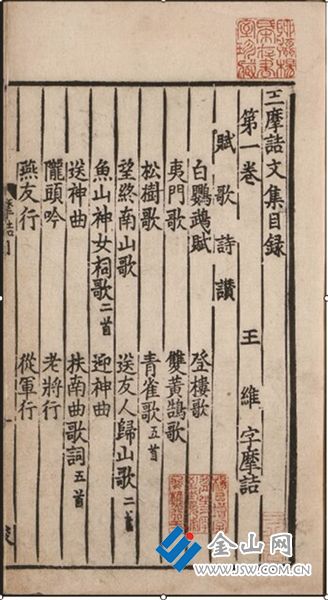 王摩詰文集目録
第一卷 王維字摩詰
賦歌詩讚
白鸚鵡賦 登樓歌
夷門歌 雙黃鵠歌
松樹歌 青雀歌五首
望終南山歌 送友人歸山歌二首
魚山神女祠歌二首 迎神曲
送神曲 扶南曲歌詞五首
隴頭吟 老將行
燕友行 從軍行
摩詰目
金山网
WWW.JSW.COM.CN